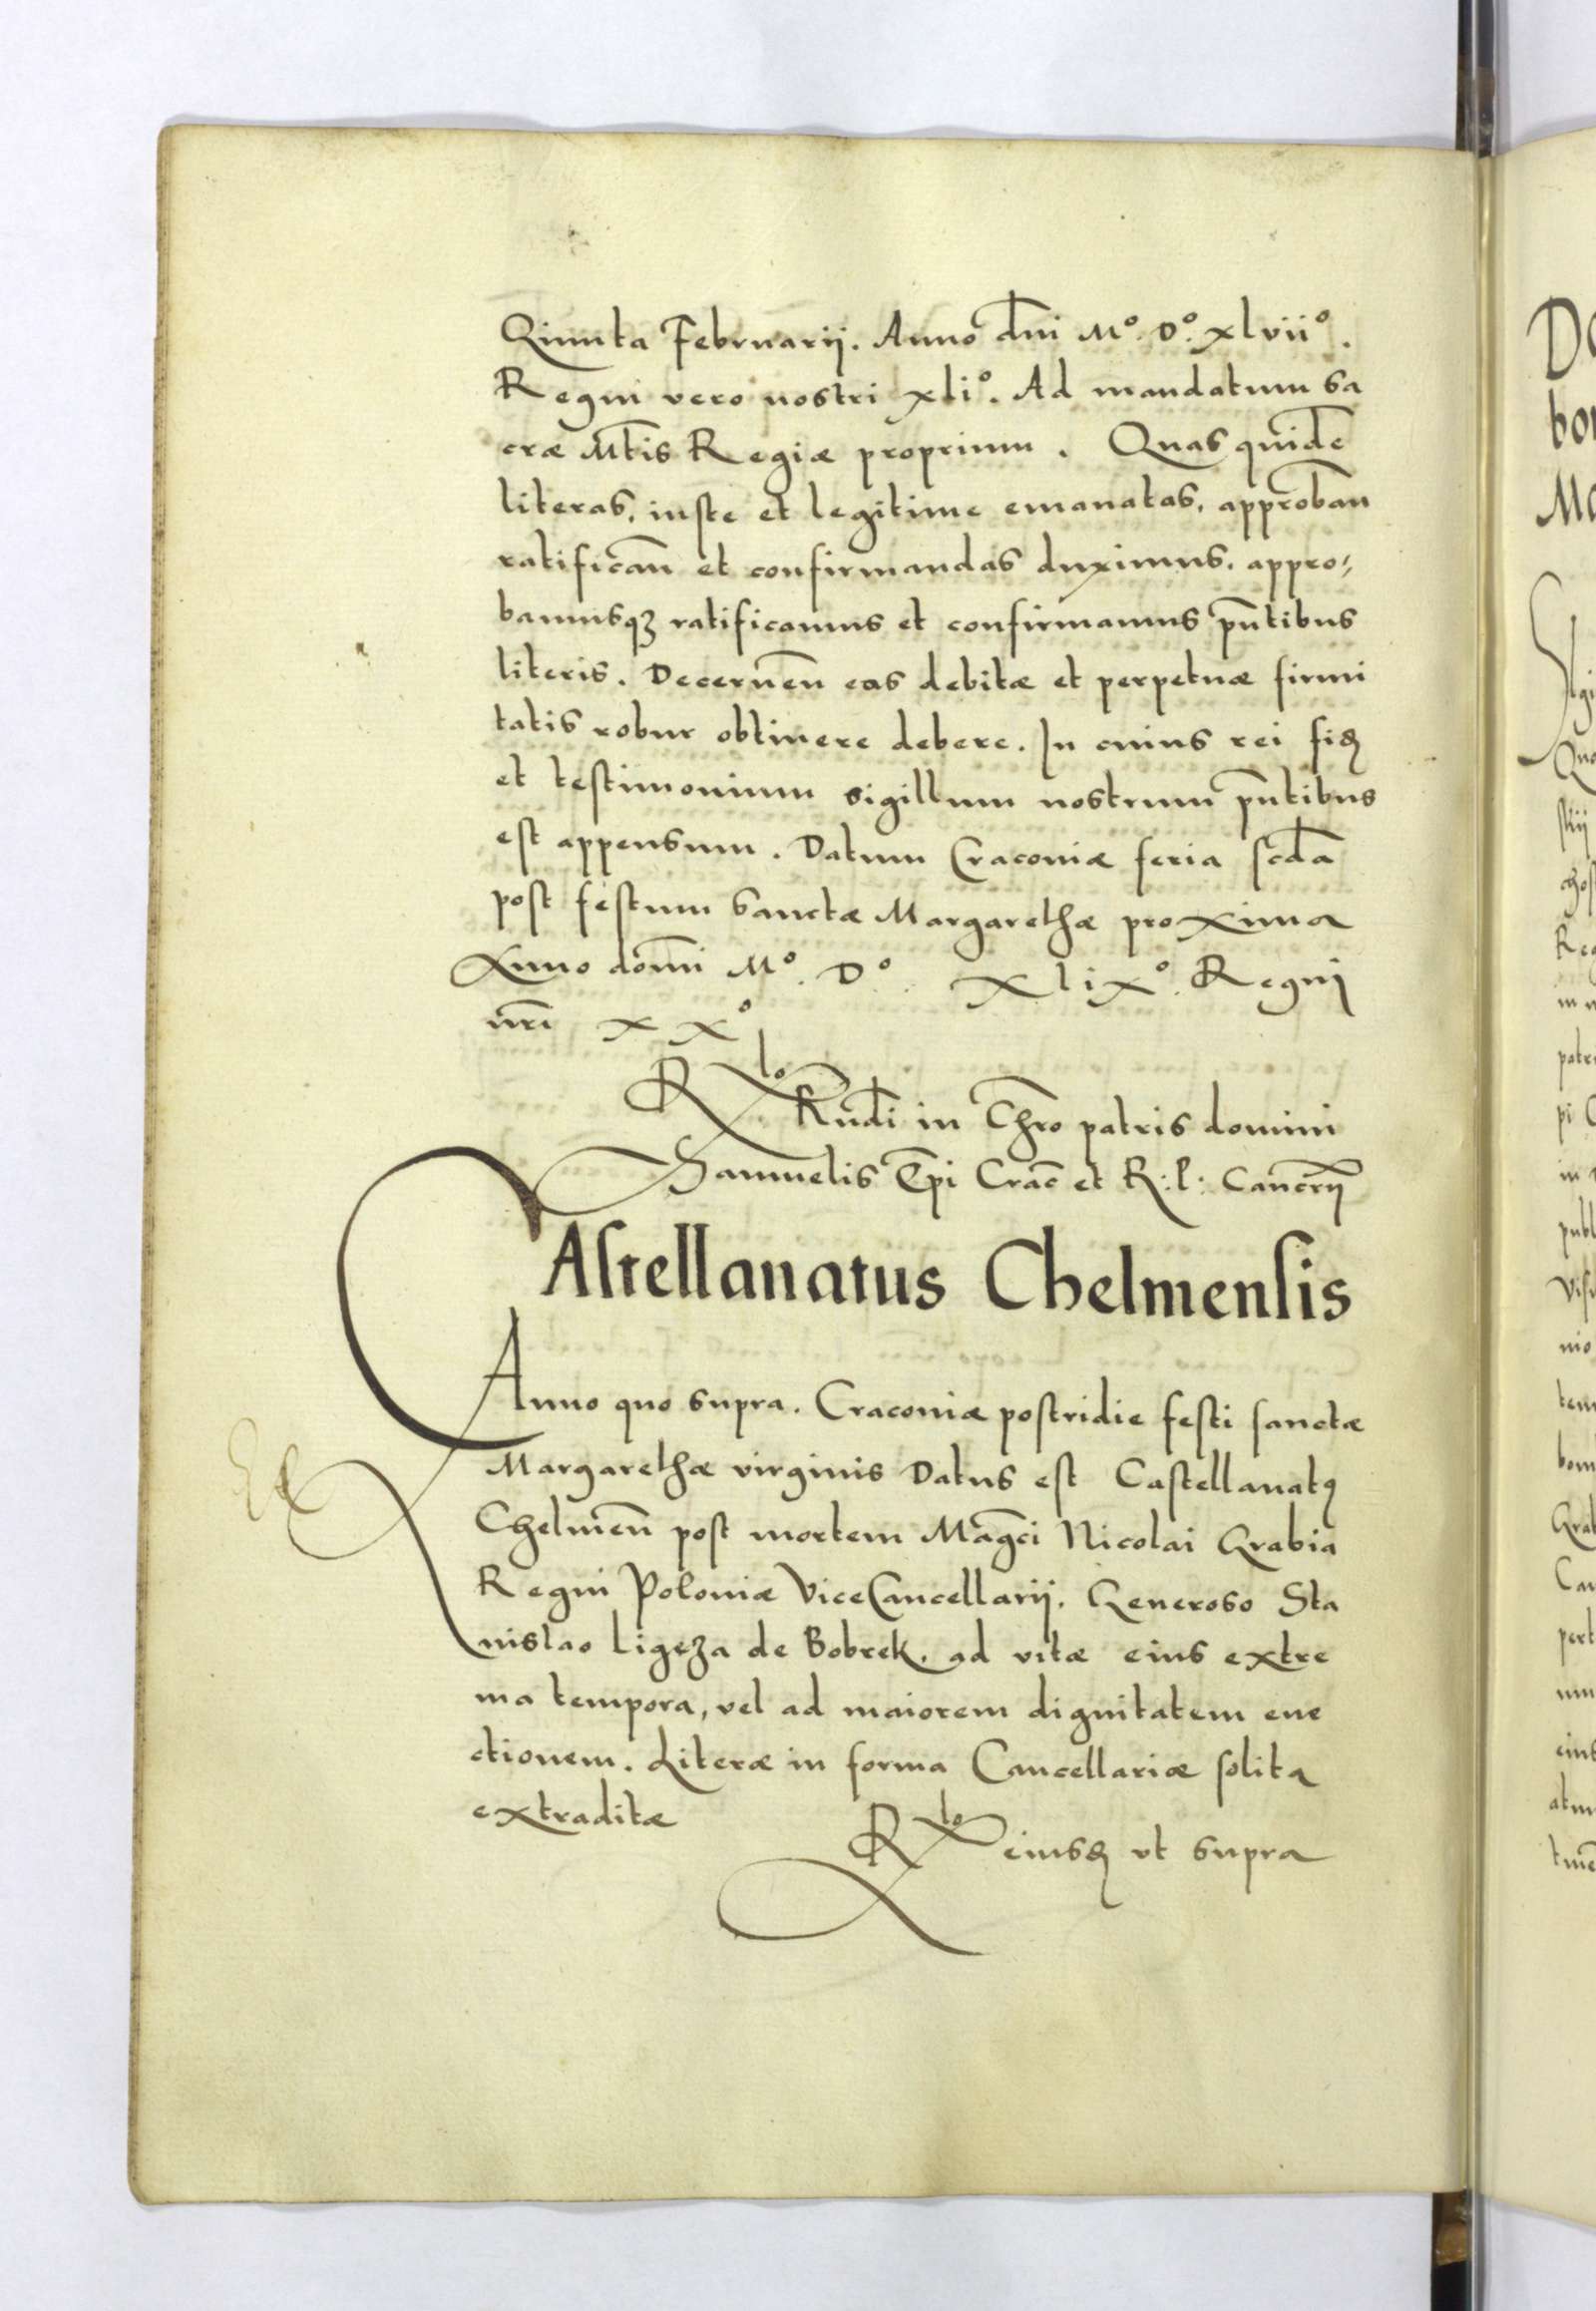 Quinta Februarii. Anno dni M° D° xlvii°.
Regni vero nostri xli°. Ad mandatum sa
cræ Mtis Regiæ proprium. Quas quide
literas, iuste et legitime emanatas, approban
ratifican et confirmandas duximus. appro⸗
bamusqꝫ ratificamus et confirmamus pntibus
literis. Decernen eas debitæ et perpetuæ firmi
tatis robur obtinere debere. In cuius rei fiđ
et testimonium sigillum nostrum pntibus
est appensum. Datum Cracoviæ feria scda
post festum Sanctæ Margarethæ proxima
Anno domi M°. D°. xlix°. Regni
nri xx°
Rlo Rndi in Chro patris domini
Samuelis Epi Crac et R: P: Cancrii
CAstellanatus Chelmensis
Anno quo supra. Cracoviæ postridie festi sanctæ
Margarethæ virginis Datus est Castellanatꝰ
Chelmen post mortem Magci Nicolai Grabia
Regni Poloniæ ViceCancellarii. Generoso Sta
nislao Ligęza de Bobrek. ad vitæ eius extre
ma tempora, vel ad maiorem dignitatem eve
ctionem. Literæ in forma Cancellariæ solita
extraditæ
Rlo eiusđ ut supra